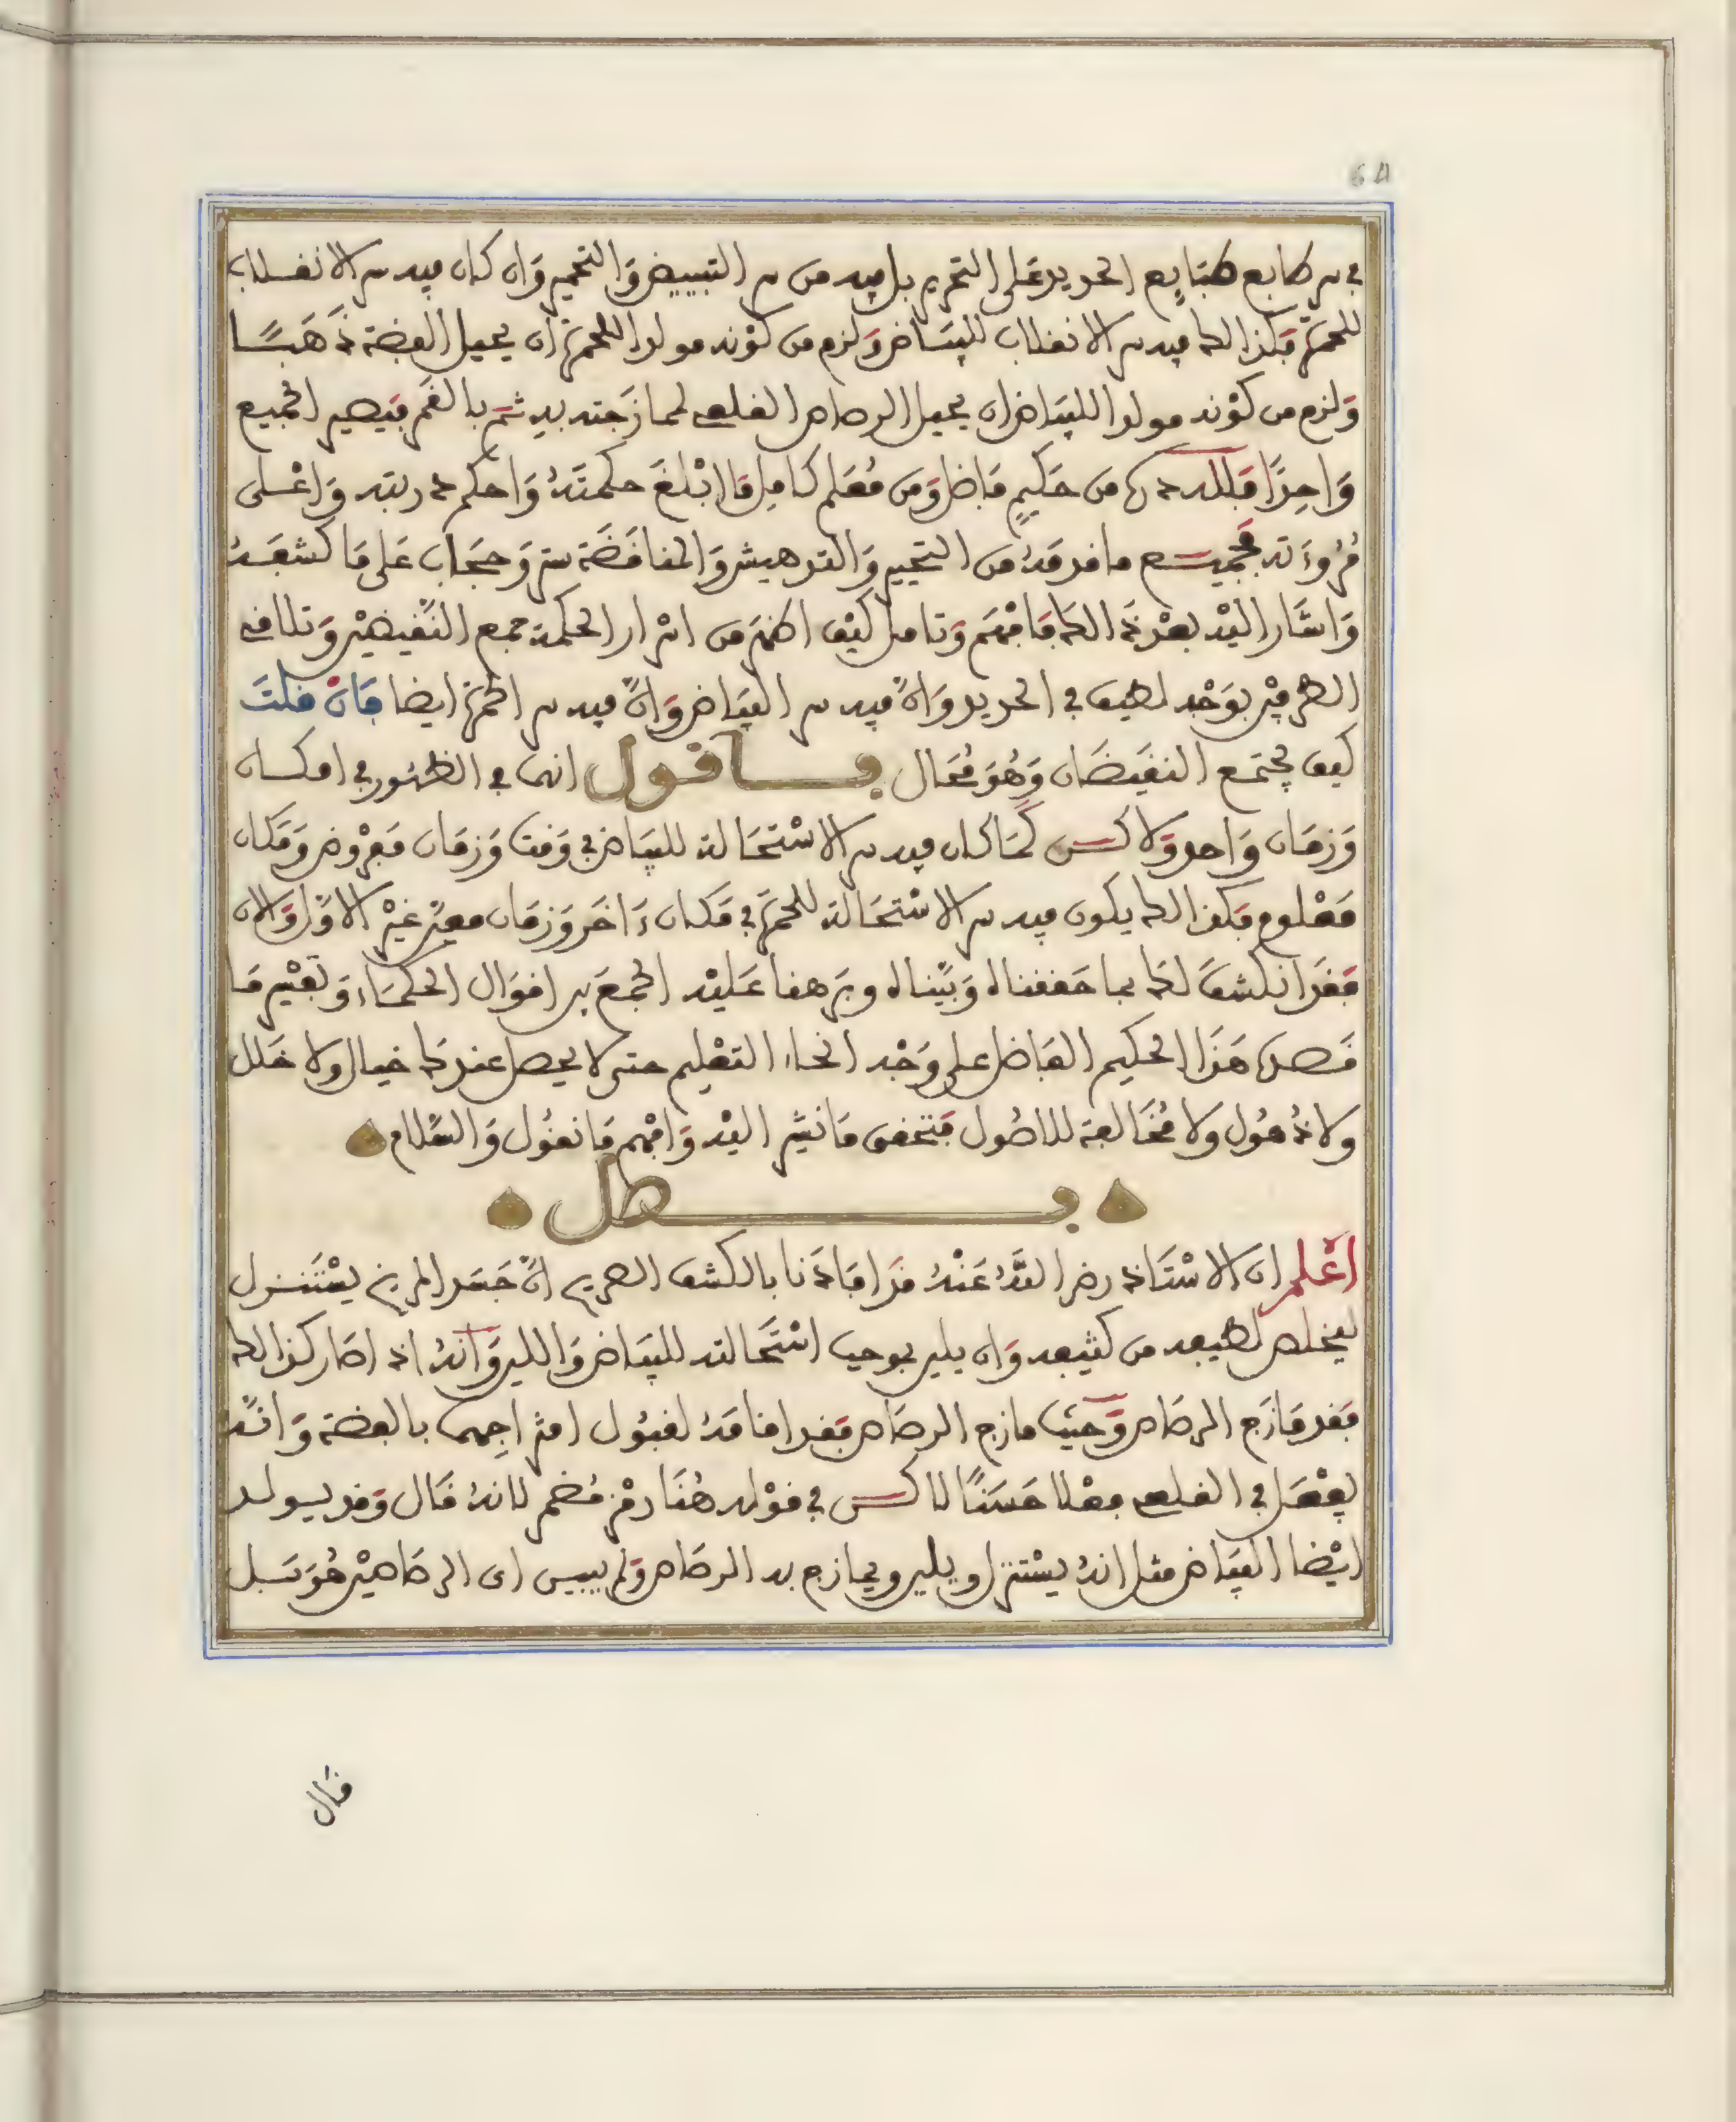 64
في سر طابع طبايع الحديد على التحرير بل فيه من سر التبييض والتحمير وان كان فيه سر الانقلاب
للحمرة فكذالك فيه سر الانقلاب للبياض ولزم من كونه مولدا للحمرة ان يحيل الفضة ذهبا
ولزم من كونه مولدا للبياض ان يحيل الرصاص القلعي لممازجته به ثم بالقمر فيصير الجميع
واحدا فلله درك من حكيم فاضل ومن معلم كامل ما ابلغ حكمته واحكم دربته واعلى
مروءته فجميع ما قدمه من التحيير والتدهيش والمناقضة ستر وحجاب على ما كشفه
واشار اليه بعد ذالك فافهم وتامل كيف اظهر من اسرار الحكمة جمع النقيضين وتلافي
الطرفين بوجه لطيف في الحديد وان فيه سر البياض وان فيه سر الحمرة ايضا فان قلت
كيف يجتمع النقيضان وهو محال فاقول انهما في الظهور في امكان
وزمان واحد ولاكن كما كان فيه سر الاستحالة للبياض في وقت وزمان مفروض ومكان
معلوم فكذالك يكون فيه سر الاستحالة للحمرة في مكان ءاخر وزمان معين غير الاول والان
فقد انكشف لك بما حققناه وبيناه وبرهنا عليه الجمع بين اقوال الحكماء وتفهيم ما
قصده هذا الحكيم الفاضل على وجه انحاء التعليم حتى لا يحصل عندك خيال ولا خلل
ولا ذهول ولا مخالفة للاصول فتحقق ما نشير اليه وافهم ما نقول والسلام
فصل
اعلم ان الاستاذ رضي الله عنه قد افادنا بالكشف الصريح ان جسد المريخ يستنزل
ليخلص لطيفه من كثيفه وان يلين بوجب استحالته للبياض واللين وانه اذا صار كذالك
فقد مازج الرصاص وحيث مازج الرصاص فقد اقامه لقبول امتزاجهما بالفضة وانه
يفعل في القلعي فعلا حسنا لاكن في قوله هنا رمز مضمر لانه قال وقد يولد
ايضا البياض مثل انه يستنزل ويلين ويمازج به الرصاص ولم يبين اي الرصاصين هو بل
قال